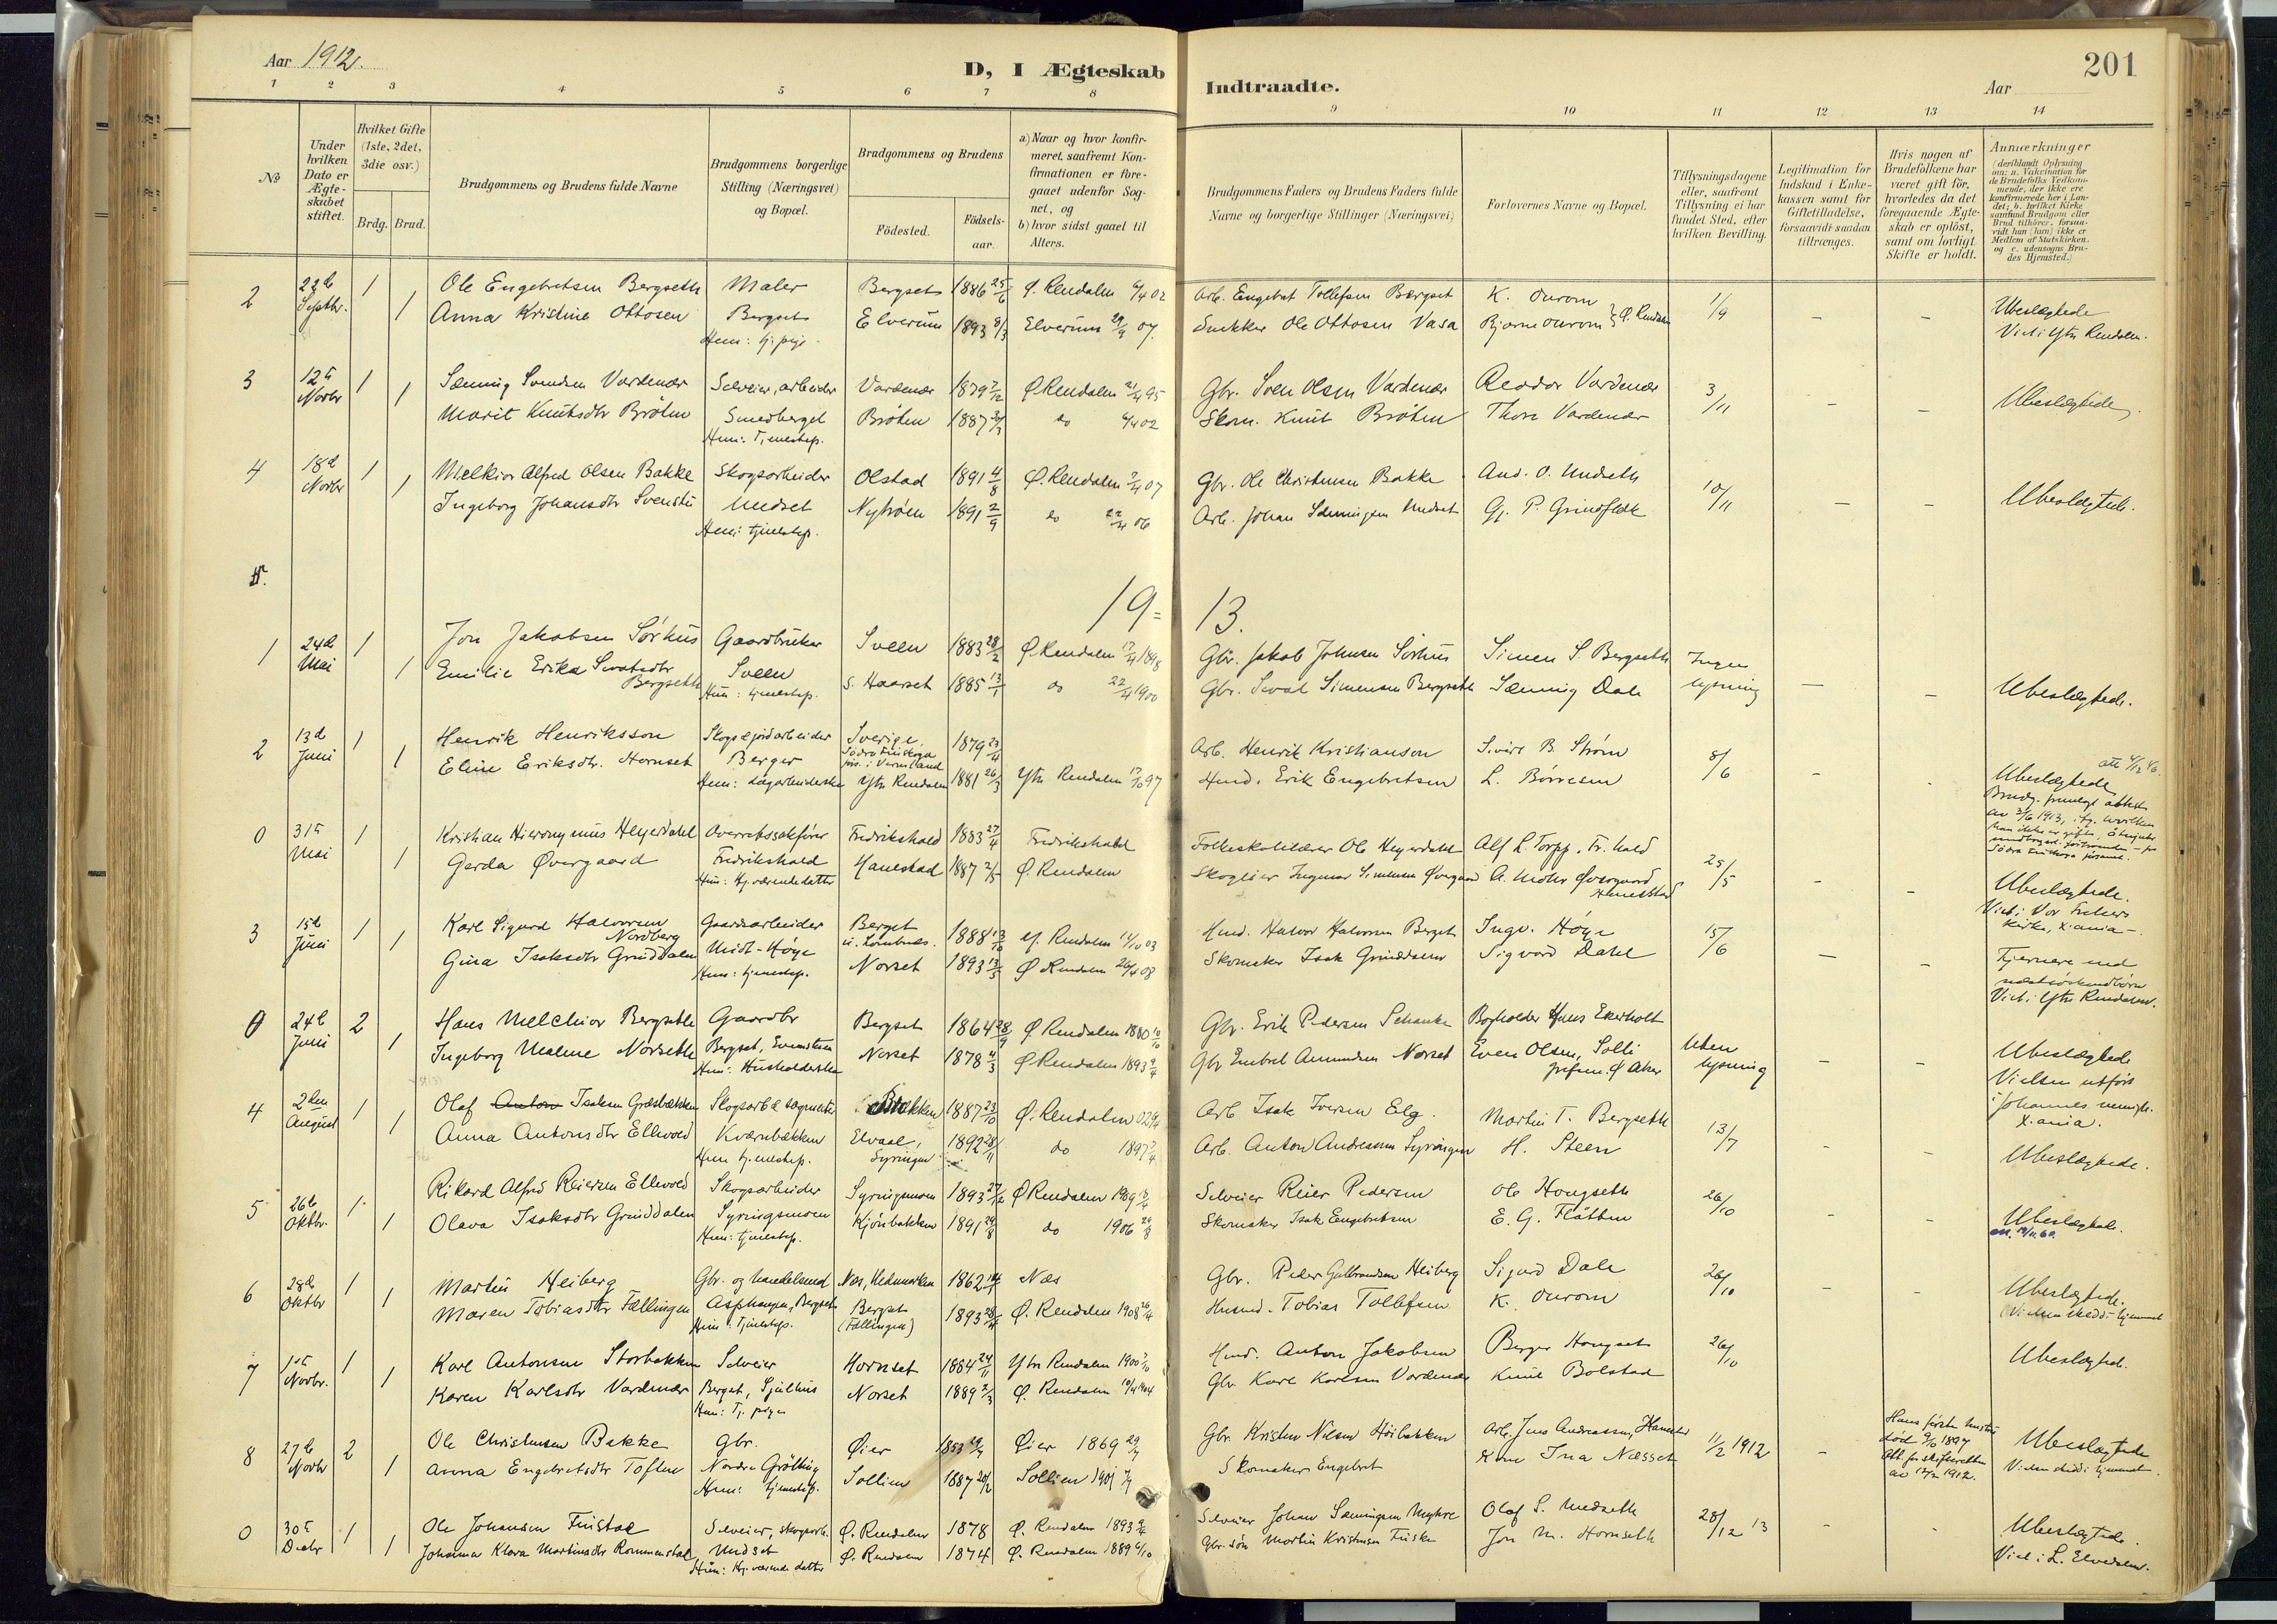 Aar 1912.
D, I Ægteskab
Indtraadte.
201
Aar
1 2 3 4 5 6 7 8 9 10 11 12 13 14
No
Under hvilken Dato er Ægteskabet stiftet.
Hvilket Gifte (1ste, 2det, 3die osv.)
Brdg. Brud.
Brudgommens og Brudens fulde Navne
Brudgommens borgerlige Stilling (Næringsvei) og Bopæl.
Brudgommens og Brudens
Födested.
Födselsaar.
a) Naar og hvor konfirmeret, saafremt Konfirmationen er foregaaet udenfor Sognet, og
b) hvor sidst gaaet til Alters.
Brudgommens Faders og Brudens Faders fulde Navne og borgerlige Stillinger (Næringsvei)
Forlovernes Navne og Bopæl.
Tillysningsdagene eller, saafremt Tillysning ei har fundet Sted, efter hvilken Bevilling.
Legitimation for Indskud i Enkekassen samt for Giftetilladelse, forsaavidt saadan tiltrænges.
Hvis nogen af Brudefolkene har været gift för, hvorledes da det foregaaende Ægteskab er oplöst, samt om lovligt Skifte er holdt.
Anmærkninger
(deriblandt Oplysning om: a. Vakcination for de Brudefolks Vedkommende, der ikke ere konfirmerede her i Landet; b. hvilket Kirkesamfund Brudgom eller Brud tilhörer, forsaavidt han (hun) ikke er Medlem af Statskirken, og c. udensogns Brudes Hjemsted.)
2 22d Septbr. 1 Ole Engebretsen Bergseth Maler Bergset 1886 25/6 Ø. Rendalen 6/4 02 Arb. Engebret Tollefsen Bergset K. Ourom 1/9 Ubeslægtede
1 Anna Kristine Ottosen Bergset Elverum 1893 8/3 Elverum 29/9 07. Snekker Ole Ottosen Vasa Bjarne Ourom Ø. Rendalen Viet i Ytre Rendalen.
Hun: tj. pige.
3 12te Novbr 1 Sæming Svendsen Vardenær Selveier, arbeider Vardenær 1879 7/12 Ø. Rendalen 21/4 95 Gbr. Sven Olsen Vardenær Reodor Vardenær 3/11 Ubeslægtede
1 Marit Knutsdtr Bröten Smedberget Bröten 1887 do 6/4 02 Skom. Knut Bröten Thore Vardenær
Hun: Tjenestep.
4 18d Novbr 1 Melkior Alfred Olsen Bakke Skogsarbeider Olstad 1891 4/8 Ø. Rendalen 7/4 07 Gbr. Ole Christensen Bakke And. O. Undseth 10/11 Ubeslægtede.
1 Ingeborg Johansdtr Undset Nybröen 1891 2/9 do 22/4 06 Arb. Johan Sæmingsen Undset Gj. P. Grindflek
Hun: tjenestep.
19=13.
1 24d Mai 1 Jon Jakobsen Sörhus Gaardbruker Sveen 1883 28/2 Ø. Rendalen 17/4 1898 Gbr. Jakob Johnsen Sörhus Simen S. Bergseth Ingen
1 Emilie Erika Sivatsdtr Bergseth Sveen S. Haarset 1885 13/1 do 22/4 1900 Gbr. Sivat Simensen Bergseth Sæming Dale lysning Ubeslægtede.
Hun: tjenestep.
2 13d Juni 1 Henrik Henriksson Skogs & jordarbeider Sverige Södra Finskoga förs. i Vermland 1879 23/4 Arb. Henrik Kristianson Sivert B. Ström 8/6
1 Eline Eriksdtr. Hornset Berger Ytre Rendalen 1881 26/3 Ytre Rendalen 17/10 97 Husd. Erik Engebretsen L. Börresen Ubeslægtede
Hun: Dagarbeiderske
Brudg. fremlagt attest av 3/6 1913
0 31te Mai 1 Kristian Hieronymus Heyerdahl Overretssakfører Fredrikshald 1883 27/4 Fredrikshald Folkeskolelærer Ole Heyerdahl Alf L. Torpp, Fr. hald 25/5 Ubeslægtede.
1 Gerda Øvergaard Fredrikshald Hanestad 1887 2/5 Ø. Rendalen Skogeier Ingmar Simensen Øvergaard A. Mohr Øvergaard Hanestad Viet i Vor Frelsers Kirke, X.ania.
Hun: Hj. værende datter
3 15d Juni 1 Karl Sigurd Halvorsen Nordberg Gaardsarbeider Berget 1888 13/10 Y. Rendalen 11/10 03 Husd. Halvor Halvorsen Berget Ingv. Höye 15/6
1 Gina Isaksdtr Grinddalen Midt-Höye Norset 1893 13/5 Ø. Rendalen 26/4 08 Skomaker Isak Grinddalen Sigvard Dahl Fjernere end næstsöskendbörn Viet i Ytre Rendalen.
Hun: tjenestep.
0 24d Juni 2 Hans Melchior Bergseth Gaardbr Bergset 1864 28/9 Ø. Rendalen 1880 10/10 Gbr. Erik Pedersen Schanke Bogholder Hans Ekerholt Uten
1 Ingeborg Malene Norseth Bergset, Norset 1878 4/3 Ø. Rendalen 1893 9/4 Gbr Embret Amundsen Norset Even Olsen, Solli lysning Ubeslægtede
Hun: Husholderske
Vielsen utfört i Johannes menigh. X.ania.
4 2den August 1 Olaf Anton Isaksen Græsbækken Skogsarb & sagmester Bækken 1887 23/10 Ø. Rendalen 02 Arb Isak Iversen Elg. Martin T. Bergseth 13/7
1 Anna Antonsdtr Ellevold Kværnbækken Elvaal, Syringen 1892 28/11 do 1897 Arb. Anton Andreassen Syringen H. Steen Ubeslægtede.
Hun tjenestep.
5 26d Oktbr. 1 Rikard Alfred Reiersen Ellevold Skogsarbeider Syringsmoen 1893 Ø. Rendalen 1909 Selveier Reier Pedersen Ole Hougseth 26/10
1 Olava Isaksdtr Grinddalen Syringsmoen Kjönbækken 1891 29/8 do 1906 Skomaker Isak Engebretsen E. G. Flåtten Ubeslægtede.
Hun: tjenestep.
6 28de Oktbr 1 Martin Heiberg Gbr. og handelsmd Næs, Hedmarken 1862 Næs Gbr. Peder Gulbrandsen Heiberg Sigurd Dale 26/10
1 Maren Tobiasdtr Fællingen Asphaugen, Bergset Bergset (Fællingen) 1893 Ø. Rendalen 1908 26/4 Husmd. Tobias Tollefsen K. Ourom Ubeslægtede.
Hun: Tjenestep.
(Vielsen skedd i hjemmet
7 1ste Novbr. 1 Karl Antonsen Storbækken Selveier Hornset 1864 24/11 Ytre Rendalen 1900 Husd. Anton Jakobsen Berger Hougseth 26/10
1 Karen Karlsdtr Vardenær Bergset, Sjulhus Norset 1889 Ø. Rendalen 10/4 1904 Gbr. Karl Karlsen Vardenær Knut Bolstad Ubeslægtede.
Hun: Tj. pige
8 27d Novbr 2 Ole Christensen Bakke Gbr. Øier 1853 Øier 1869 Gbr. Kristen Nilsen Höibakken Arb. Jens Andreassen, Hanestad 11/2 1912 Hans förste hustru död 9/6 1897 Att. fra skifteretten av 12/2 1912. Ubeslægtede
1 Anna Engebretsdtr Toften Nordre Grötting Sollien 1887 20/2 Sollien 1901 Skomaker Engebret Kone Ina Næsset Vielsen skedd i hjemmet.
Hun: tjenestep.
0 30te Decbr 1 Ole Johansen Finstad Selveier, skogsarb. Ø. Rendalen 1878 Ø. Rendalen 1893 Selveier Johan Sæmingsen Myhre Olaf S. Undseth 28/12 13 Ubeslægtede.
1 Johanna Klara Martinsdtr Rommenstad Undset Ø. Rendalen 1874 Ø. Rendalen 1889 6/10 Gbr. sön Martin Kristensen Finstad Jon M. Hornseth Viet i L. Elvedalen.
Hun: Hj. værende datter